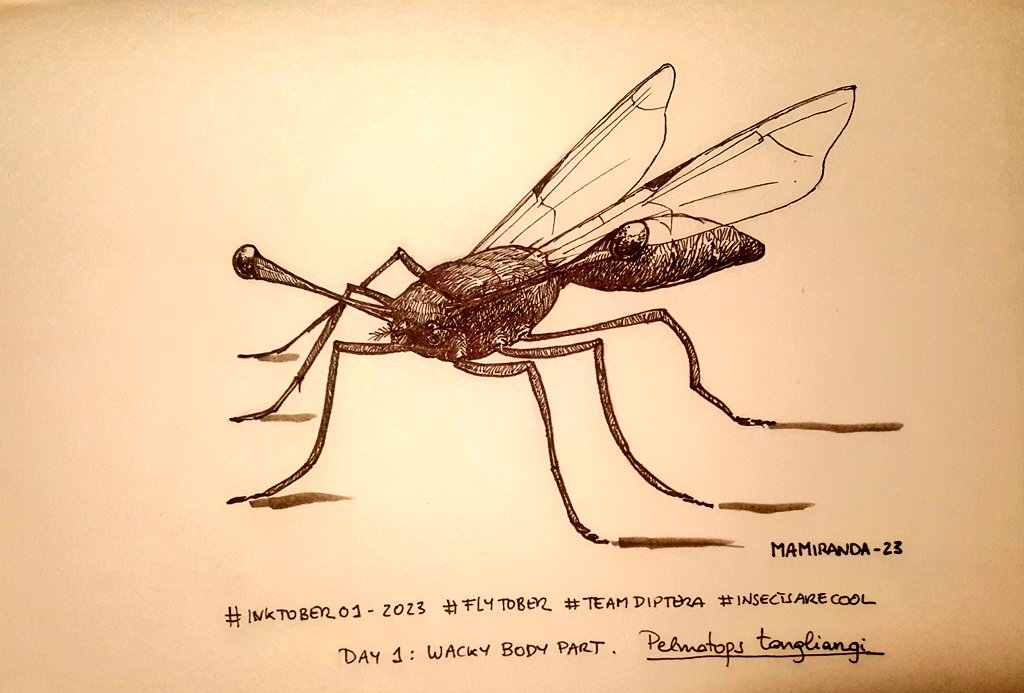 MAMIRANDA-23
#INKTOBER01-2023 #FLYTOBER #TEAMDIPTERA #INSECTSARECOOL
DAY 1: WACKY BODY PART. Pelmatops tangliangi